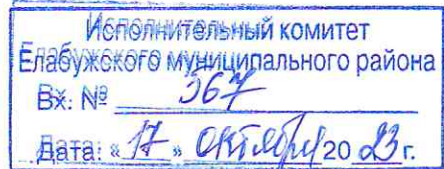 Исполнительный комитет
Елабужского муниципального района
Вх. № 567
Дата: « 17 » октября 20 23 г.